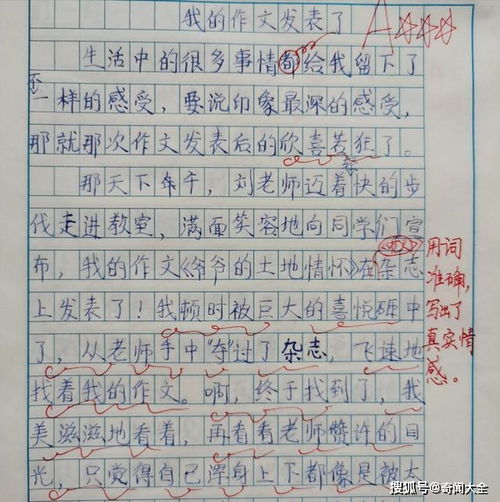 我的作文发表了
A
生活中的很多事情都给我留下了
不
一样的感受，要说印象最深的感受，
那就那次作文发表后的欣喜若狂了。
那天下午，刘老师迈着快的步
伐走进教室，满面笑容地向同学们宣
布，我的作文《爷爷的土地情怀》在杂志
上发表了！我顿时被巨大的喜悦砸中
了，从老师手中"夺"过了杂志，飞速地
找着我的作文。啊，终于找到了，我
美滋滋地看着，再看看老师赞许的目
光，只觉得自己浑身上下都像是被太
用词
准确，
写出了
真实情
感。
搜狐号@奇闻大全